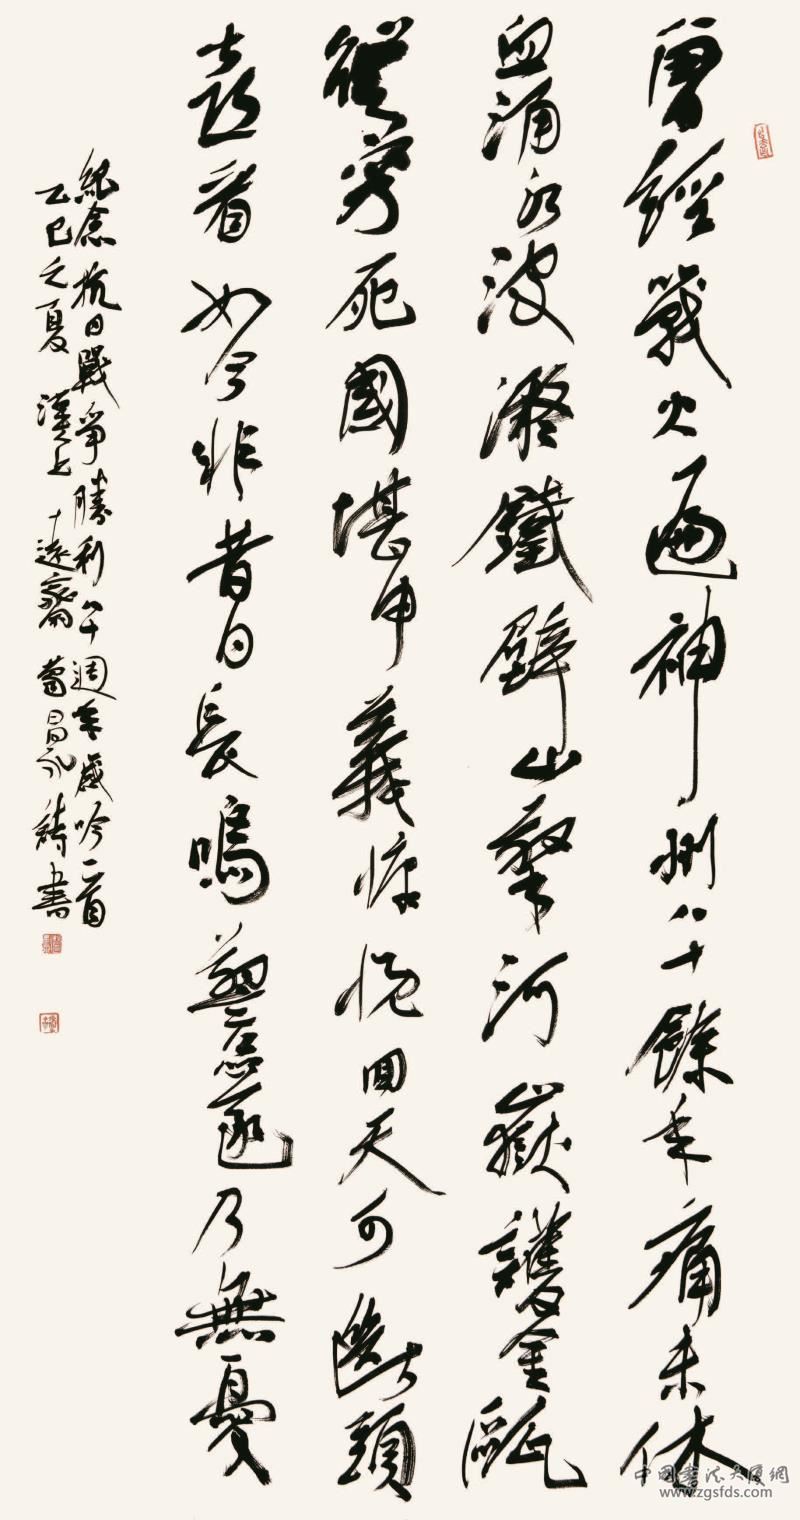 曾經戰火遍神州八十餘年痛未休
血涌水波凝鐵壁山擎河嶽護金甌
從容死國堪申義慷慨回天可斷頭
喜看如今非昔日長鳴警乃無憂
紀念抗日戰爭勝利八十週年感吟一首
乙巳之夏漢上十遠齋葛昌永詩書
中国书法大厦网
www.zgsfds.com